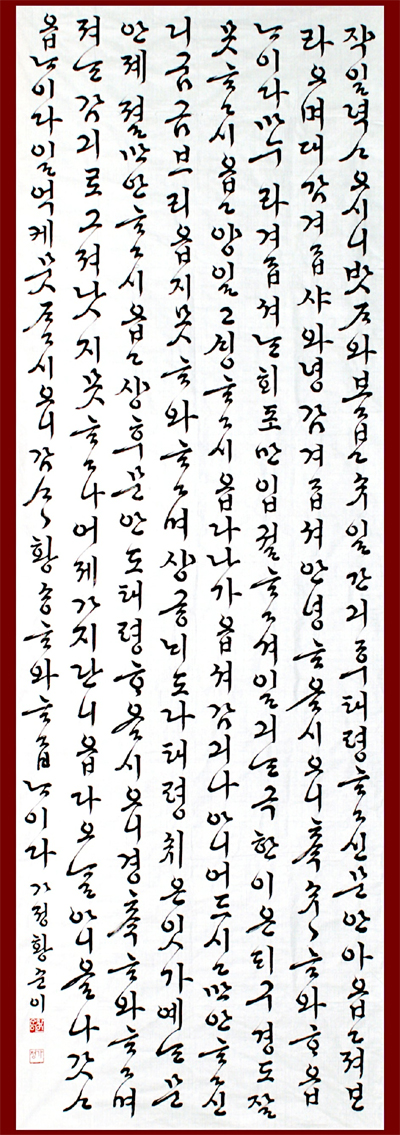 작일 뎍ᄉᆞ오시니 밧ᄌᆞ와 보ᄋᆞᆸ고 수일간 긔후 태평ᄒᆞᄋᆞ신 문안 아ᄋᆞᆸ고져 ᄇᆞ
라오며 대감겨ᄋᆞᆸ샤와 녕감겨ᄋᆞᆸ셔 안녕ᄒᆞᄋᆞᆸ시오니 축수〻ᄒᆞ와 ᄒᆞᄋᆞᆸ
ᄂᆞ이다 마누라겨ᄋᆞᆸ셔ᄂᆞᆫ 회포만 입궐ᄒᆞᄋᆞ셔 일긔ᄂᆞᆫ 극한이온ᄃᆡ 구경도 잘
못ᄒᆞᄋᆞ시ᄋᆞᆸ고 양일 고ᄉᆡᆼᄒᆞᄋᆞ시ᄋᆞᆸ다 나가ᄋᆞᆸ셔 감긔나 아니 어드시고 만안ᄒᆞᄋᆞ신
디 굼굼브리ᄋᆞᆸ지 못ᄒᆞ와 ᄒᆞᄋᆞ며 샹궁ᄂᆡ도 다 태평 온잇가 예ᄂᆞᆫ 문
안 제졀 만안ᄒᆞᄋᆞ시ᄋᆞᆸ고 샹후 문안도 태평ᄒᆞᄋᆞᆸ시오니 경축ᄒᆞ와 ᄒᆞᄋᆞ며
져ᄂᆞᆫ 감긔로 그져 낫지 못ᄒᆞᄋᆞ나 어제가지 난니ᄋᆞᆸ다 오ᄂᆞᆯ 아니 올나 갓ᄉᆞ
ᄋᆞᆸᄂᆞ이다 일억케 뭇ᄌᆞᄋᆞ시오니 감ᄉᆞ〻 황송ᄒᆞ와 ᄒᆞᄋᆞᆸᄂᆞ이다 가정 황순이